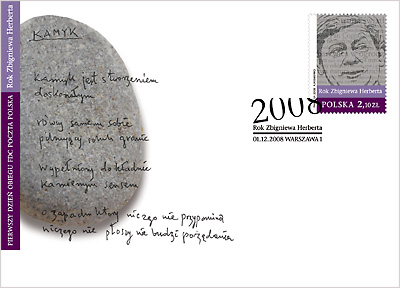 KAMYK
kamyk jest stworzeniem
doskonałym
równy samemu sobie
pilnujący swoich granic
wypełniony dokładnie
kamiennym sensem
o zapachu który niczego nie przypomina
niczego nie płoszy nie budzi pożądania
Rok Zbigniewa Herberta
PIERWSZY DZIEŃ OBIEGU FDC POCZTA POLSKA
Rok Zbigniewa Herberta
POLSKA 2,10 ZŁ
2008
Rok Zbigniewa Herberta
01.12.2008 WARSZAWA 1